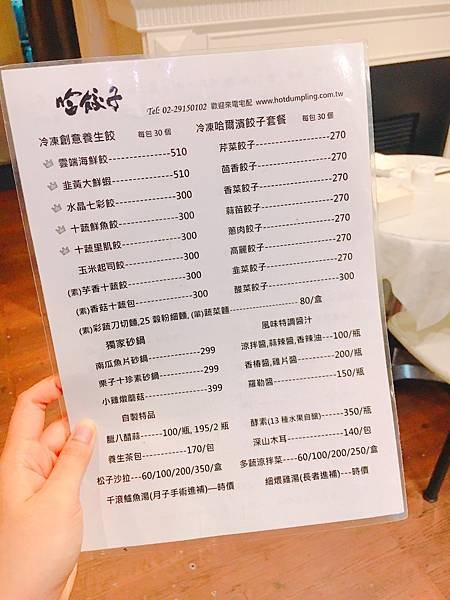 哈餃子
Tel: 02-29150102 歡迎來電宅配 www.hotdumpling.com.tw
冷凍創意養生餃 每包30個
雲端海鮮餃---------------510
韭黃大鮮蝦---------------510
水晶七彩餃---------------300
十蔬鮮魚餃---------------300
十蔬里肌餃---------------300
玉米起司餃---------------300
(素)芋香十蔬餃-----------300
(素)香菇十蔬包-----------300
冷凍哈爾濱餃子套餐 每包30個
芹菜餃子----------------270
茴香餃子----------------270
香菜餃子----------------270
蒜苗餃子----------------270
蔥肉餃子----------------270
高麗餃子----------------270
韭菜餃子----------------270
酸菜餃子----------------300
(素)彩蔬刀切麵,25穀粉細麵,(葷)蔬菜麵---------------- 80/盒
獨家砂鍋
南瓜魚片砂鍋--------------299
栗子十珍素砂鍋------------299
小雞燉蘑菇----------------399
風味特調醬汁
涼拌醬,蒜辣醬,香辣油---100/瓶
香椿醬,雞片醬----------200/瓶
羅勒醬------------------150/瓶
自製特品
臘八醋蒜------100/瓶, 195/2瓶
養生茶包------------170/包
松子沙拉---60/100/200/350/盒
千浪鱸魚湯(月子手術進補)---時價
酵素(13種水果自釀)------350/瓶
深山木耳---------------140/包
多蔬涼拌菜---60/100/200/250/盒
細煨雞湯(長者進補)---時價